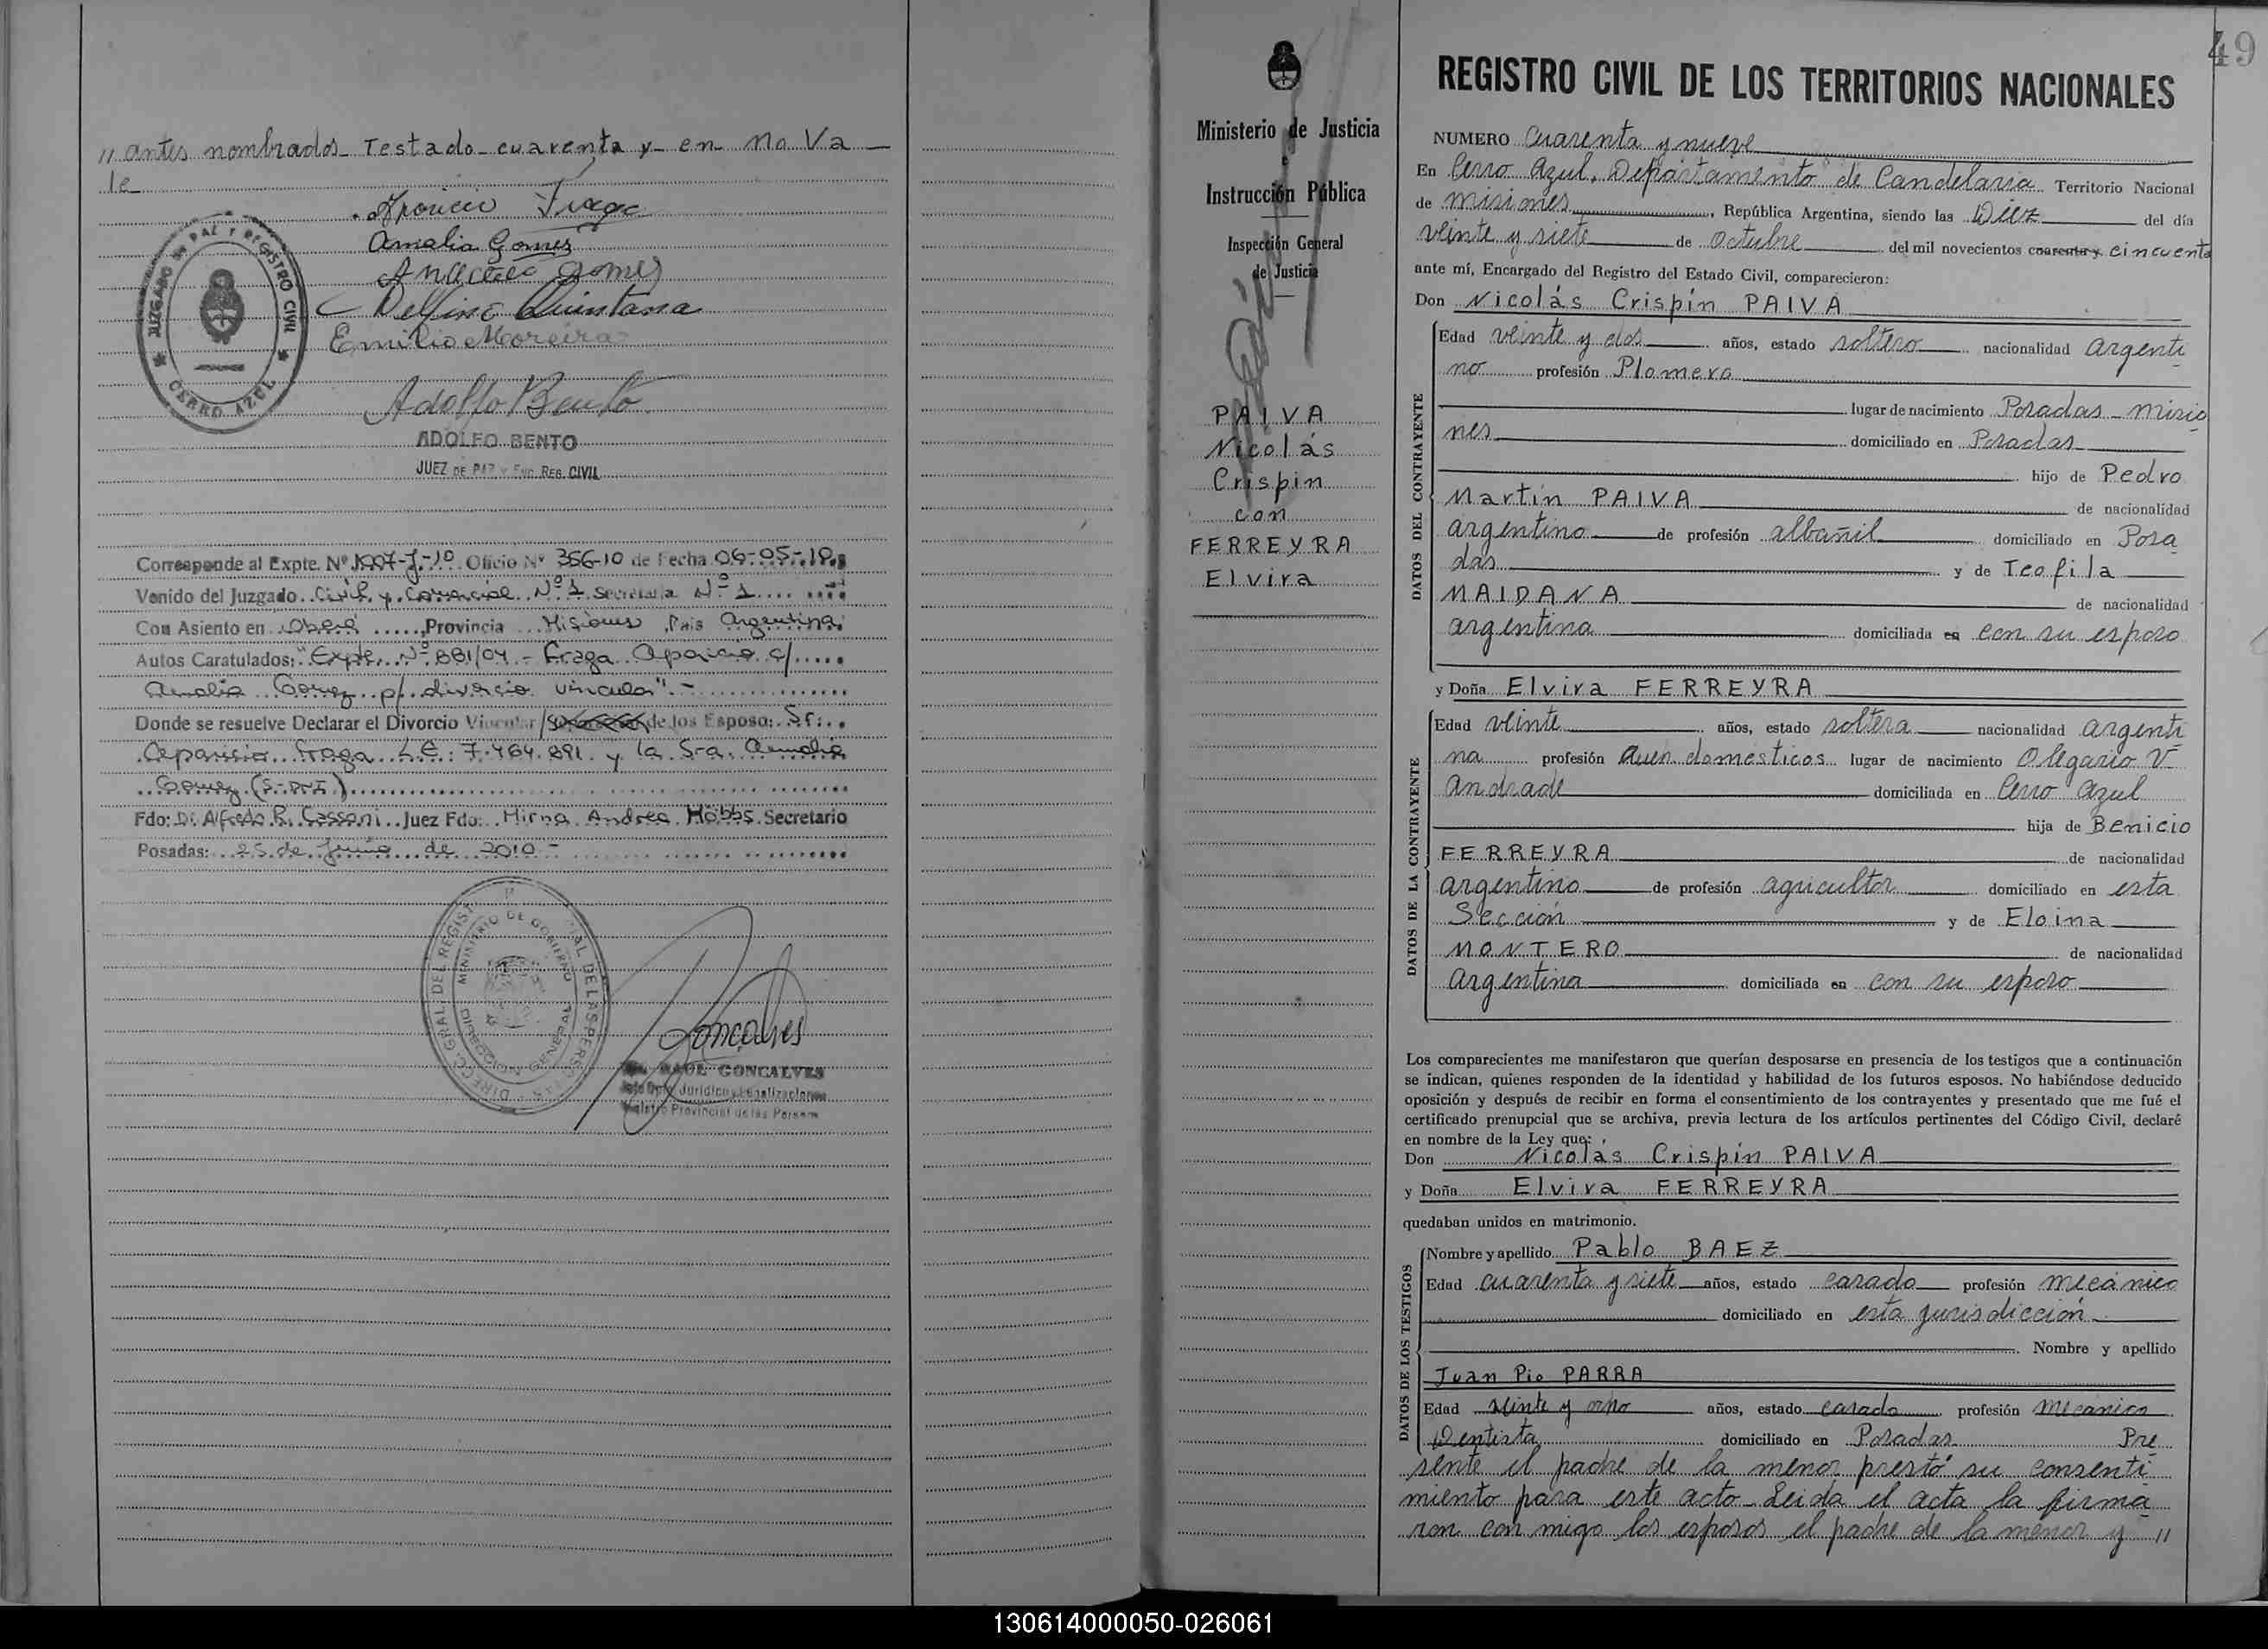 // antes nombrados_ Testado_ cuarenta y_ en_ no Va_
le
Amalia Gomes
Delfino Quintana
Emilio Moreira
JUZGADO DE PAZ Y REGISTRO CIVIL
CERRO AZUL
Adolfo Bento
ADOLFO BENTO
JUEZ DE PAZ y ENC. REG. CIVIL
Corresponde al Expte. Nº Oficio Nº 356-10 de Fecha 06-05-10
Venido del Juzgado Civil y Comercial Nº 1 Secretaria Nº 1
Con Asiento en Oberá, Provincia Misiones, Pais Argentina
Autos Caratulados: "Expte. Nº 881/04 - Fraga Aparicio c/
Amalia Gomez p/ divorcio vincular".-
Donde se resuelve Declarar el Divorcio Vincular / de los Esposo: Sr:
Aparicio Fraga L.E.: 7.464.891 y la Sra. Amalia
Gomez (S-DNI)
Fdo: Dr Alfredo R. Cassoni Juez Fdo: Mirna Andrea Hobbs Secretario
Posadas: 25 de Junio de 2010 -
MINISTERIO DE GOBIERNO
Goncalves
RAUL GONCALVES
49
Ministerio de Justicia
e
Instrucción Pública
Inspección General
de Justicia
PAIVA
Nicolás
Crispín
con
FERREYRA
Elvira
REGISTRO CIVIL DE LOS TERRITORIOS NACIONALES
NUMERO Cuarenta y nueve
En Cerro Azul, Departamento de Candelaria Territorio Nacional
de Misiones, República Argentina, siendo las Diez del día
veinte y siete de Octubre del mil novecientos cuarenta y cincuenta
ante mí, Encargado del Registro del Estado Civil, comparecieron:
Don Nicolás Crispín PAIVA
DATOS DEL CONTRAYENTE
Edad veinte y dos años, estado soltero nacionalidad argenti
no profesión Plomero
lugar de nacimiento Posadas_ Misio
nes domiciliado en Posadas
hijo de Pedro
Martín PAIVA de nacionalidad
argentino de profesión albañil domiciliado en Posa
das y de Teofila
MAIDANA de nacionalidad
argentina domiciliada en con su esposo
y Doña Elvira FERREYRA
DATOS DE LA CONTRAYENTE
Edad veinte años, estado soltera nacionalidad argenti
na profesión Quen domésticos lugar de nacimiento Olegario V
Andrade domiciliada en Cerro Azul
hija de Benicio
FERREYRA de nacionalidad
argentino de profesión agricultor domiciliado en esta
Sección y de Eloina
MONTERO de nacionalidad
argentina domiciliada en con su esposo
Los comparecientes me manifestaron que querían desposarse en presencia de los testigos que a continuación
se indican, quienes responden de la identidad y habilidad de los futuros esposos. No habiéndose deducido
oposición y después de recibir en forma el consentimiento de los contrayentes y presentado que me fué el
certificado prenupcial que se archiva, previa lectura de los artículos pertinentes del Código Civil, declaré
en nombre de la Ley que:
Don Nicolás Crispín PAIVA
y Doña Elvira FERREYRA
quedaban unidos en matrimonio.
DATOS DE LOS TESTIGOS
Nombre y apellido Pablo BAEZ
Edad cuarenta y siete años, estado casado profesión mecánico
domiciliado en esta jurisdicción
Nombre y apellido
Juan Pio PARRA
Edad veinte y ocho años, estado casado profesión mecánico
Dentista domiciliado en Posadas Pre
sente el padre de la menor prestó su consenti
miento para este acto_ Leida el acta la firma
ron con migo los esposos el padre de la menor y //
130614000050-026061